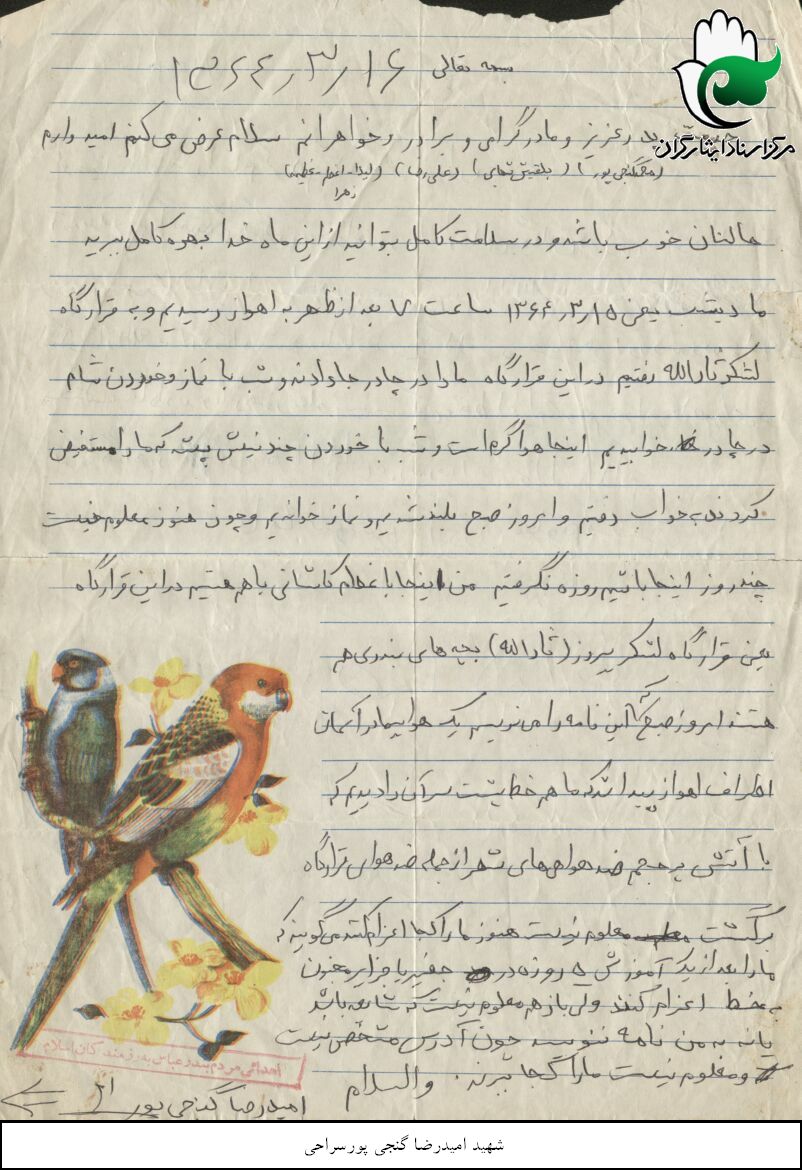 بسمه تعالی ۱۳۶۴٫۳٫۱۶
مرکز اسناد ایثارگران
خدمت پدر عزیز و مادر گرامی و برادر و خواهرانم سلام عرض می کنم امیدوارم
زهرا
حالتان خوب باشد و در سلامت کامل بتوانید از این ماه خدا بهره کامل ببرید
ما دیشب یعنی ۱۳۶۴٫۳٫۱۵ ساعت ۷ بعد از ظهر به اهواز رسیدیم و به قرارگاه
لشکر ثارالله رفتیم در این قرارگاه ما را در چادر جا دادند و شب با نماز و خوردن شام
در چادر خوابیدیم اینجا هوا گرم است و شب با خوردن چند نیش پشه که ما را مستفیض
کردند به خواب رفتیم و امروز صبح بلند شدیم و نماز خواندیم و چون هنوز معلوم نیست
چند روز اینجا باشیم روزه نگرفتیم من اینجا با غلام کاشانی با هم هستیم در این قرارگاه
یعنی قرارگاه لشکر پیروز (ثارالله) بچه های بندری هم
هستند امروز صبح که این نامه را می نویسم یک هواپیما در آسمان
اطراف اهواز پیدا شد که ما هم خط پشت سر آن را دیدیم که
با آتش پر حجم ضد هوایی های شهر از جمله ضد هوایی قرارگاه
برگشت معلوم نیست هنوز ما را کجا اعزام کنند می گویند که
ما را بعد از یک آموزش ۵ روزه در جفیر یا جزایر مجنون
به خط اعزام کنند ولی باز هم معلوم نیست که شایعه باشد
یا نه به من نامه ننویسید چون آدرس مشخص نیست
و معلوم نیست ما را کجا ببرند. والسلام
اهدائی مردم بندرعباس به رزمندگان اسلام
امیدرضا گنجی پور
شهید امیدرضا گنجی پورسراحی